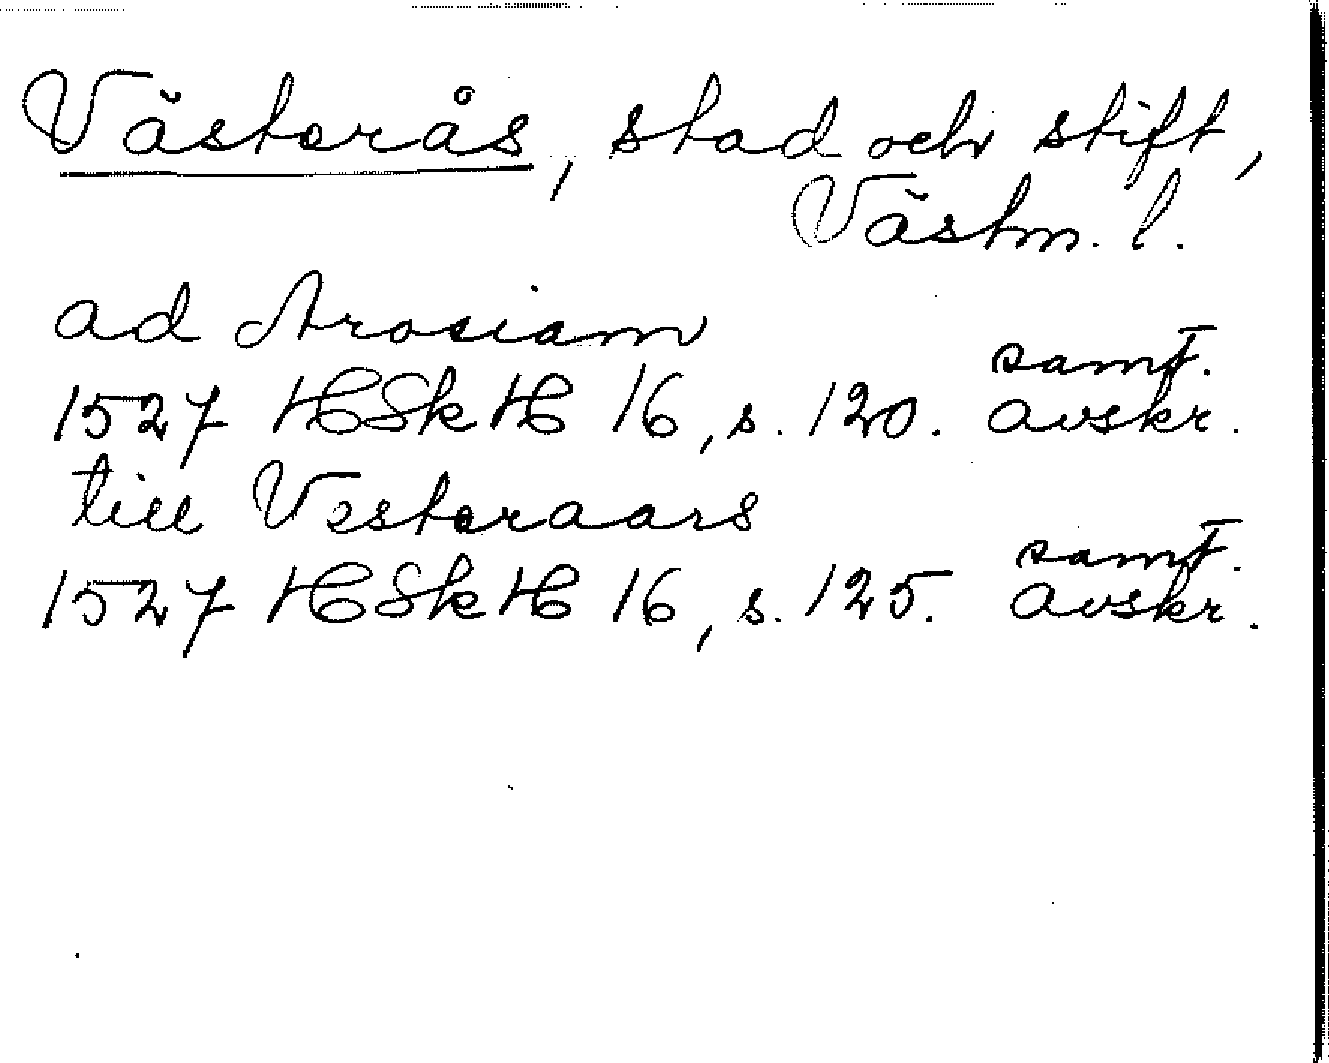 Västerås, stad och stift,
Västm. l.
ad Arosiam
samt.
1527 HSkH 16, s. 120. avskr.
till Vesteraars
samt.
1527 HSkH 16, s. 125. avskr.